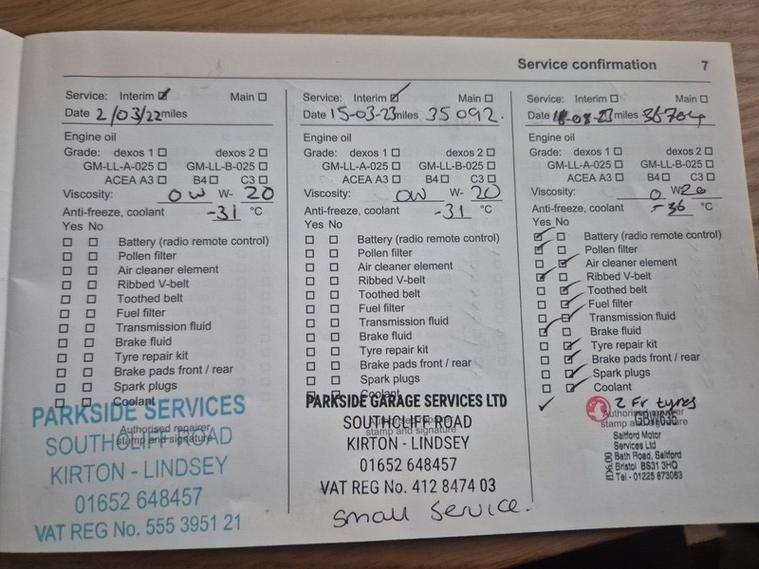 Service confirmation 7
Service: Interim Main
Date 2/03/22 miles
Engine oil
Grade: dexos 1 dexos 2
GM-LL-A-025 GM-LL-B-025
ACEA A3 B4 C3
Viscosity: OW W- 20
Anti-freeze, coolant -31 °C
Yes No
Battery (radio remote control)
Pollen filter
Air cleaner element
Ribbed V-belt
Toothed belt
Fuel filter
Transmission fluid
Brake fluid
Tyre repair kit
Brake pads front / rear
Spark plugs
Coolant
PARKSIDE SERVICES
Authorised repairer
stamp and signature
SOUTHCLIFF ROAD
KIRTON - LINDSEY
01652 648457
VAT REG No. 555 3951 21
Service: Interim Main
Date 15-03-23 miles 35092.
Engine oil
Grade: dexos 1 dexos 2
GM-LL-A-025 GM-LL-B-025
ACEA A3 B4 C3
Viscosity: OW W- 20
Anti-freeze, coolant -31 °C
Yes No
Battery (radio remote control)
Pollen filter
Air cleaner element
Ribbed V-belt
Toothed belt
Fuel filter
Transmission fluid
Brake fluid
Tyre repair kit
Brake pads front / rear
Spark plugs
Coolant
PARKSIDE GARAGE SERVICES LTD
Authorised repairer
stamp and signature
SOUTHCLIFF ROAD
KIRTON - LINDSEY
01652 648457
VAT REG No. 412 8474 03
small service.
Service: Interim Main
Date miles
Engine oil
Grade: dexos 1 dexos 2
GM-LL-A-025 GM-LL-B-025
ACEA A3 B4 C3
Viscosity: 0 W- 20
Anti-freeze, coolant -36 °C
Yes No
Battery (radio remote control)
Pollen filter
Air cleaner element
Ribbed V-belt
Toothed belt
Fuel filter
Transmission fluid
Brake fluid
Tyre repair kit
Brake pads front / rear
Spark plugs
Coolant
2 Fr tyres
Authorised repairer
stamp and signature
GBW635
Saltford Motor
Services Ltd
Bath Road, Saltford
Bristol BS31 3HQ
Tel - 01225 873063